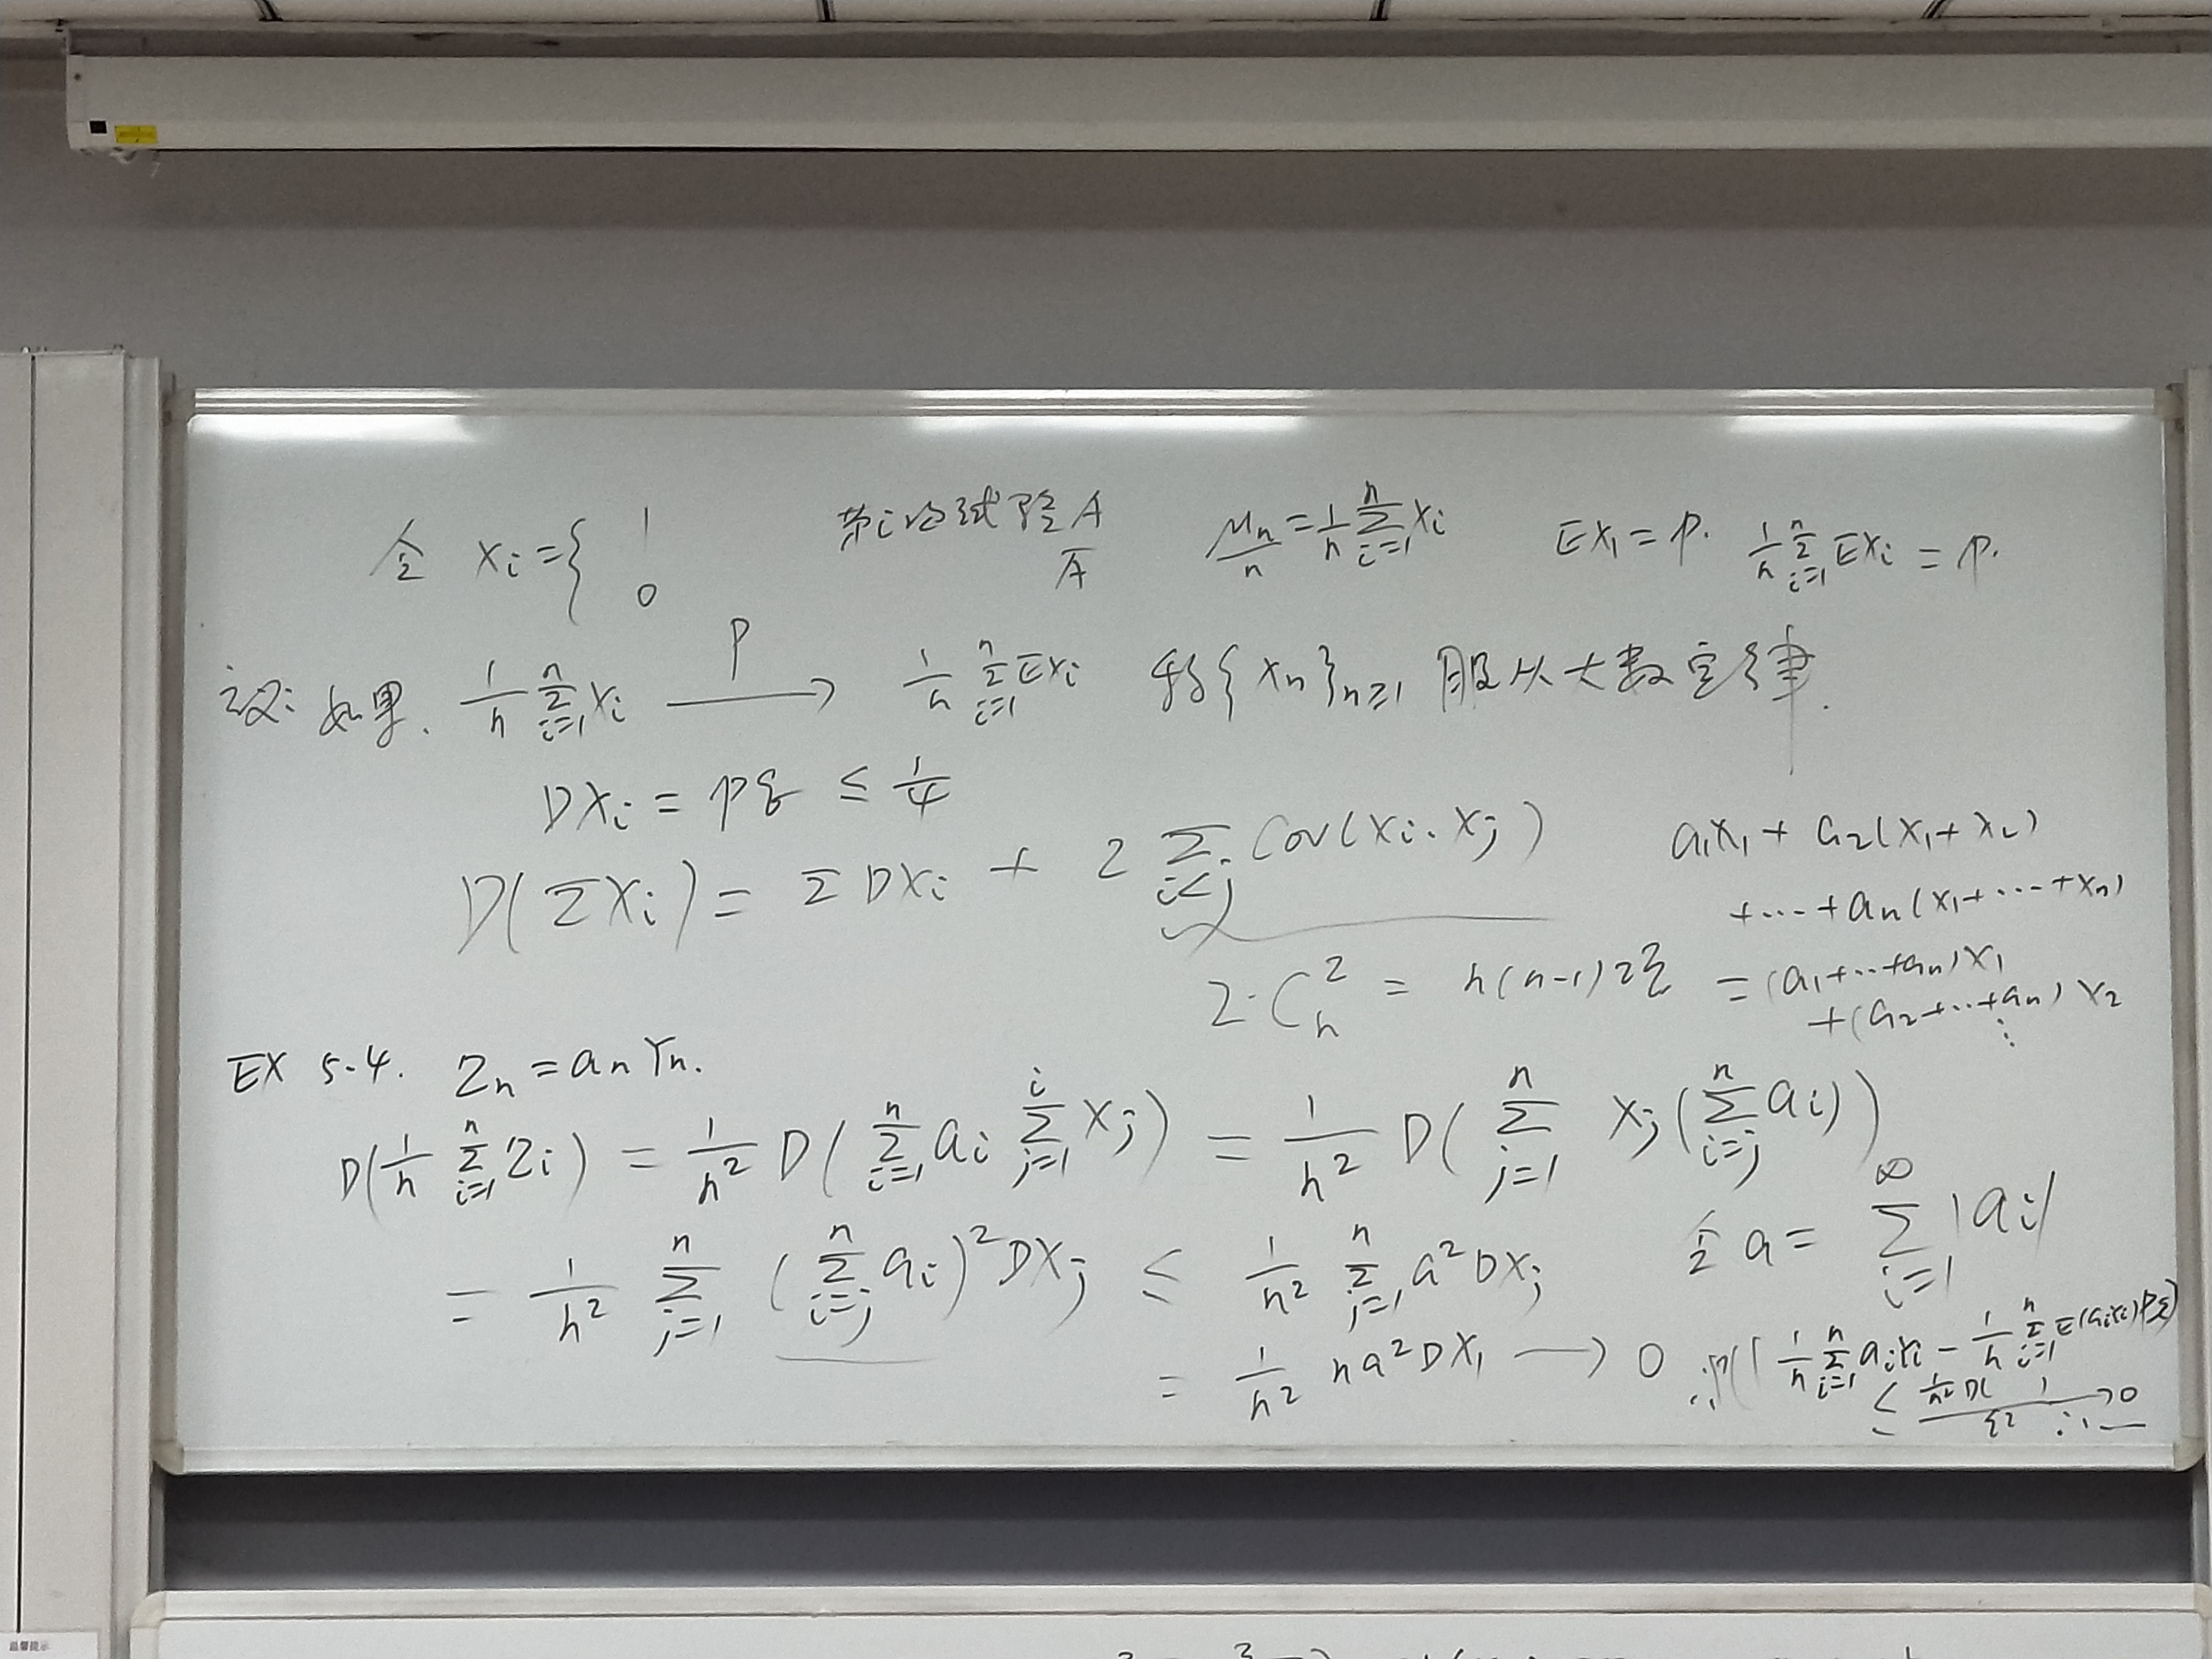 令 Xi = { 1 第i次试验A μn/n = 1/n Σ_{i=1}^{n} Xi EX1 = p. 1/n Σ_{i=1}^{n} EXi = p.
0 Ā
设: 如果. 1/n Σ_{i=1}^{n} Xi —P→ 1/n Σ_{i=1}^{n} EXi 称{Xn}_{n≥1} 服从大数定律.
DXi = pq ≤ 1/4
D(ΣXi) = ΣDXi + 2 Σ_{i<j} Cov(Xi. Xj)
a1X1 + a2(X1+X2)
+⋯+an(X1+⋯+Xn)
2·C_n^2 = n(n-1)
=(a1+⋯+an)X1
+(a2+⋯+an)X2
⋮
EX 5-4. Zn = anYn.
D(1/n Σ_{i=1}^{n} Zi) = 1/n² D(Σ_{i=1}^{n} ai Σ_{j=1}^{i} Xj) = 1/n² D(Σ_{j=1}^{n} Xj(Σ_{i=j}^{n} ai))
= 1/n² Σ_{j=1}^{n} (Σ_{i=j}^{n} ai)² DXj ≤ 1/n² Σ_{j=1}^{n} a² DXj 令 a = Σ_{i=1}^{∞} |ai|
= 1/n² na² DX1 → 0 ∴P(| 1/n Σ_{i=1}^{n} aiYi − 1/n Σ_{i=1}^{n} E(aiYi)|≥ε)
≤ 1/n² D( )/ε² → 0
温馨提示